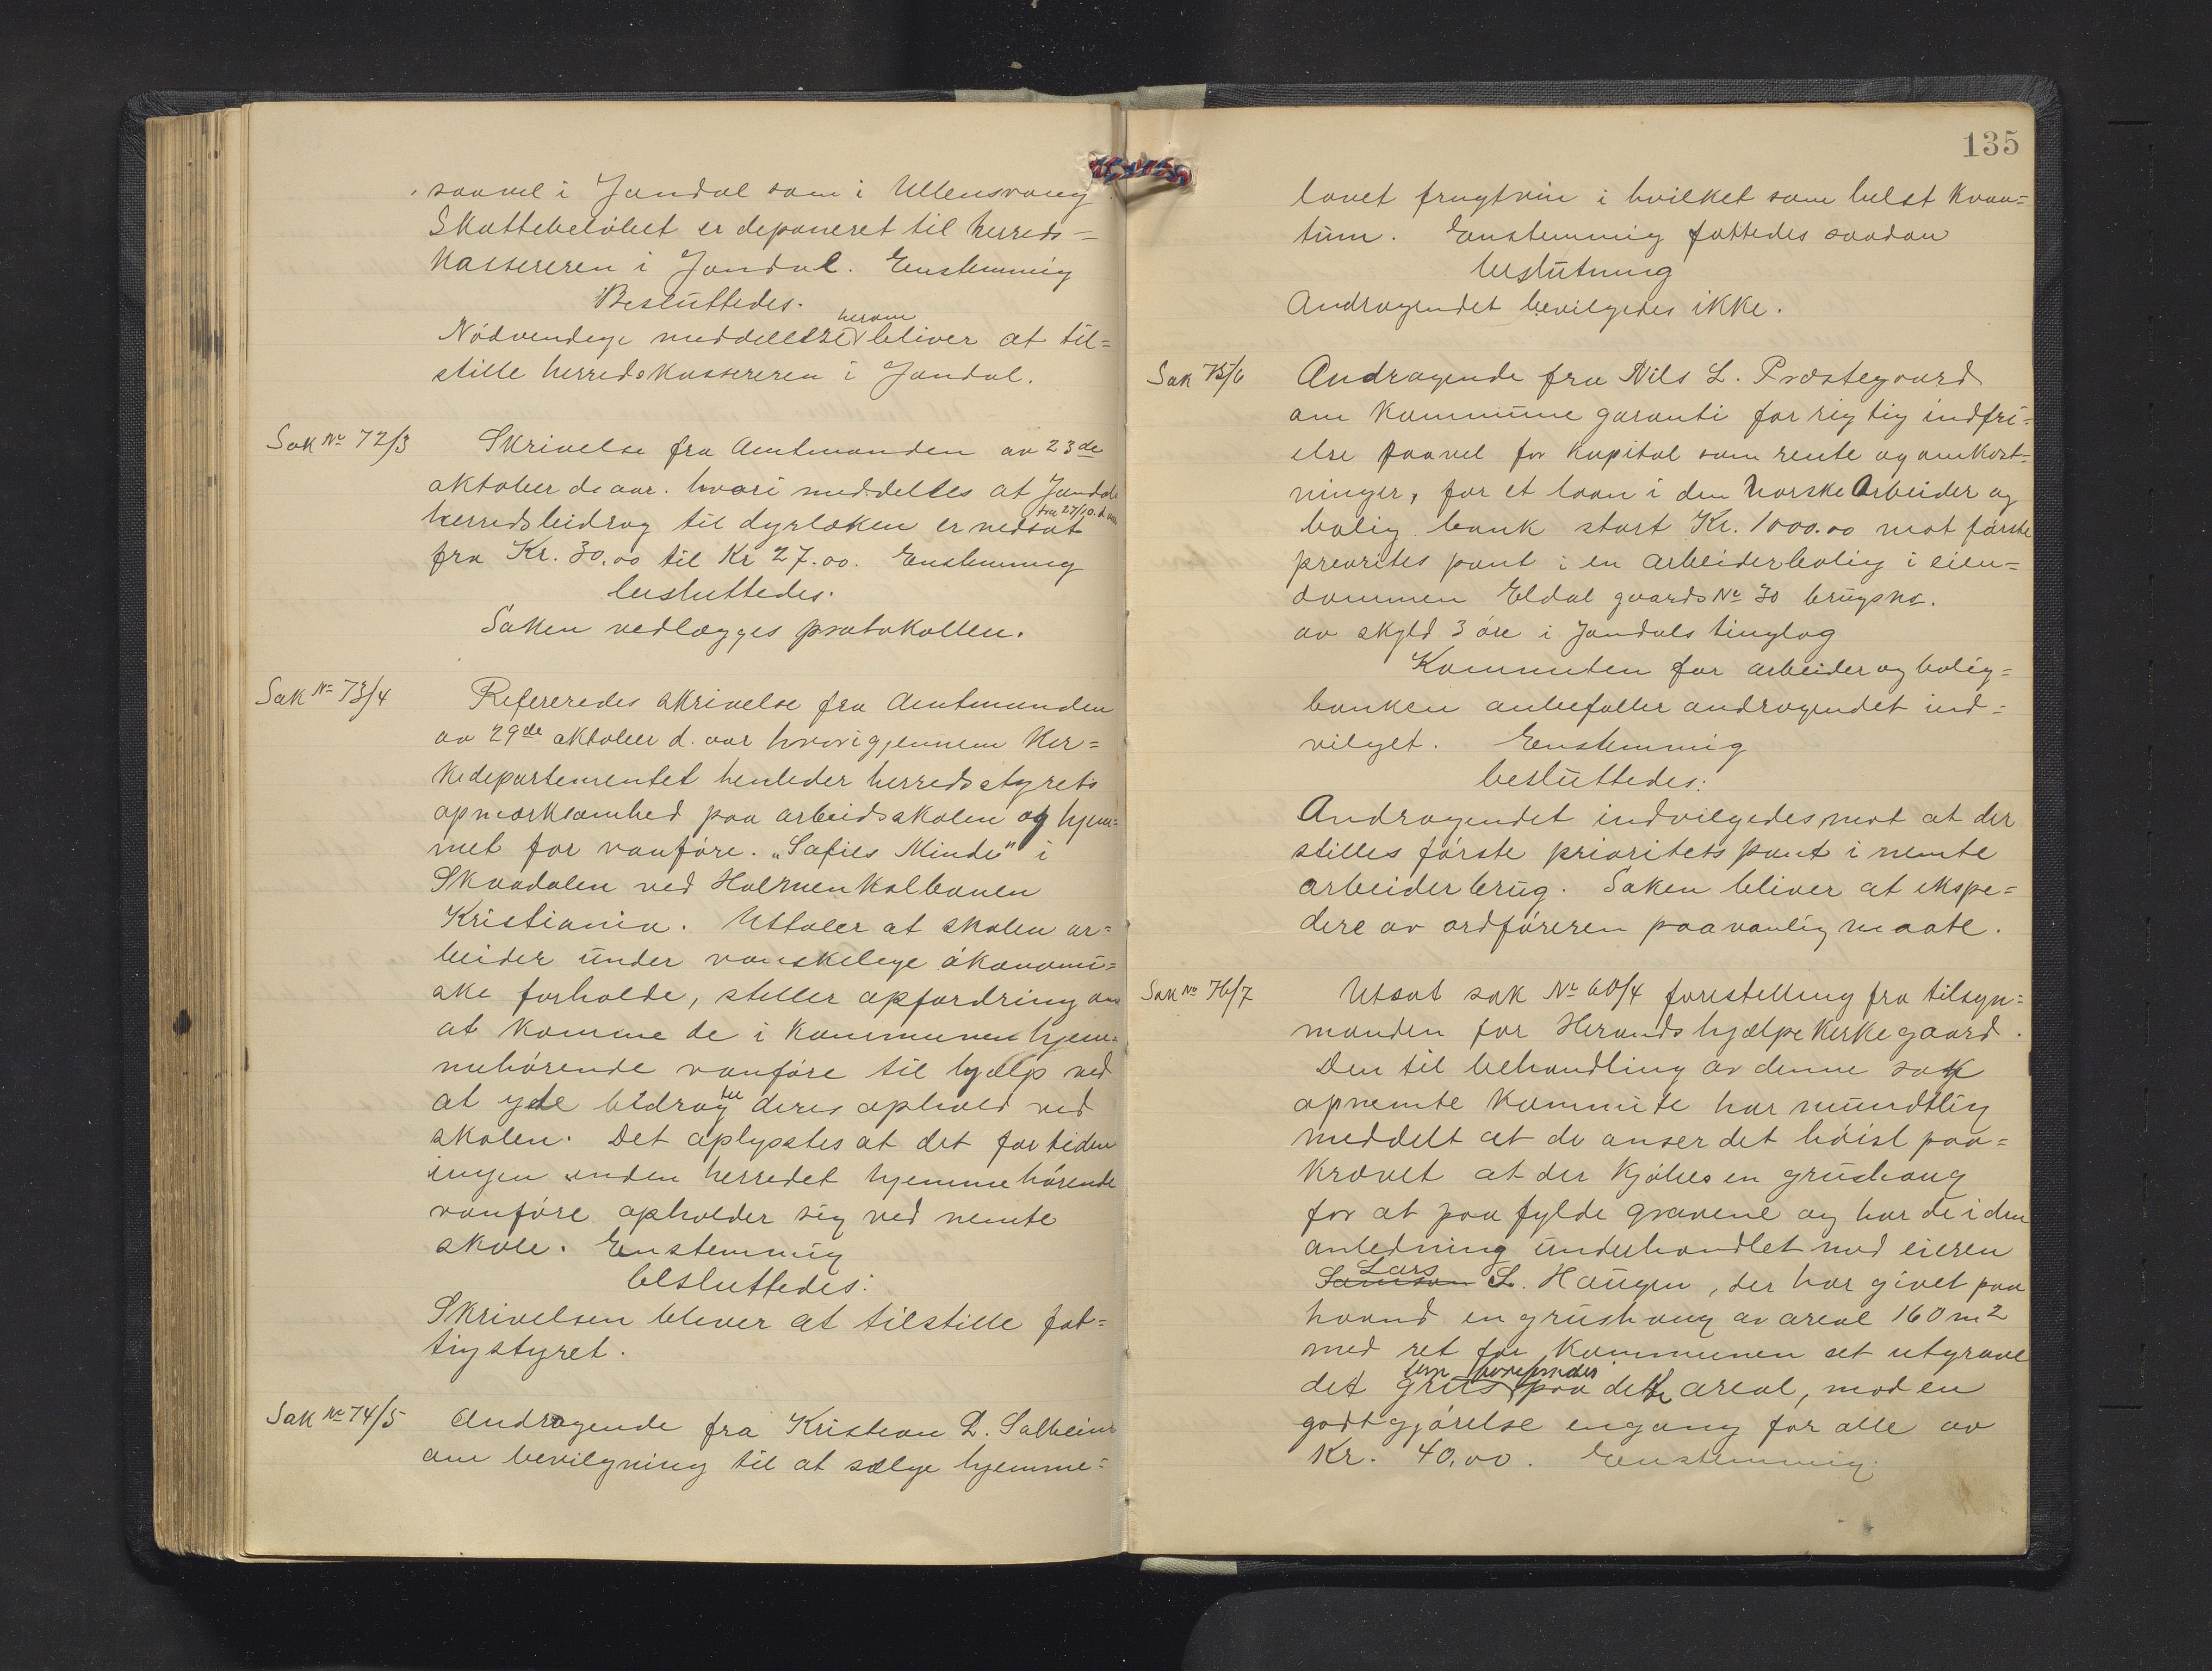 saavel i Jondal som i Ullensvang
Skattebeløbet er deponeret til herreds=
kassereren i Jondal. Enstemmig
Besluttedes.
herom
Nødvendige meddelelse bliver at til=
stille herredskassereren i Jondal.
Sak No 72/3 Skrivelse fra Amtmanden av 23de
oktober d. aar. hvori meddelles at Jondals
fra 27/10. d. aar
herredsbidrag til dyrlægen er nedsat
fra Kr. 30.00 til Kr 27.00. Enstemmig
besluttedes.
Saken vedlægges protokollen.
Sak No 73/4 Refereredes skrivelse fra Amtmanden
av 29de oktober d. aar hvori gjennem Kir=
kedepartementet henleder herredsstyrets
opmærksomhed paa arbeidsskolen og hjem=
met for vanføre. "Sofies Minde" i
Skaadalen ved Holmenkolbanen
Kristiania. Uttaler at skolen ar=
beider under vanskelige økonomi=
ske forholde, stiller opfordring om
at komme de i kommunen hjem=
mehørende vanføre til hjælp ved
til
at yde bidrag deres ophold ved
skolen. Det oplystes at det for tiden
ingen inden herredet hjemmehørende
vanføre opholder sig ved nemte
skole. Enstemmig
besluttedes:
Skrivelsen bliver at tilstille fat=
tigstyret.
Sak No 74/5 Andragende fra Kristian L. Solheim
om bevilgning til at sælge hjemme=
135
lavet frugtvin i hvilket som helst kvan=
tum. Enstemmig fattedes saadan
beslutning
Andragendet bevilgedes ikke.
Sak 75/6 Andragende fra Nils L. Præstegaard
om kommune garanti for rigtig indfri=
else saavel for kapital som rente og omkost=
ninger, for et laan i den Norske Arbeider og
bolig bank stort Kr. 1000.00 mot første
preorites pant i en arbeiderbolig i eien=
dommen Eldal gaards No 30 brugsno.
av skyld 3 øre i Jondals tinglag
Kommiteen for arbeider og bolig=
banken anbefaller andragendet ind=
vilget. Enstemmig
besluttedes:
Andragendet indvilgedes mot at der
stilles første prioritets pant i nemte
arbeiderbrug. Saken bliver at ekspe=
dere av ordføreren paa vanlig maate.
Sak No 76/7 Utsat sak No 60/4 forestelling fra tilsyn=
manden for Herands hjælpe kirkegaard.
Den til behandling av denne sak
opnemte kommite har mundtlig
meddelt at de anser det høist paa=
krævet at der kjøbes en grushaug
for at paa fylde gravene og har de i den
anledning underhandlet med eieren
Lars
Samson L. Haugen, der har givet paa
haand en grushaug av areal 160 m2
med ret for kommunen at utgrave
som forefindes
det grus paa dette areal, mod en
godtgjørelse engang for alle av
Kr. 40,00. Enstemmig.